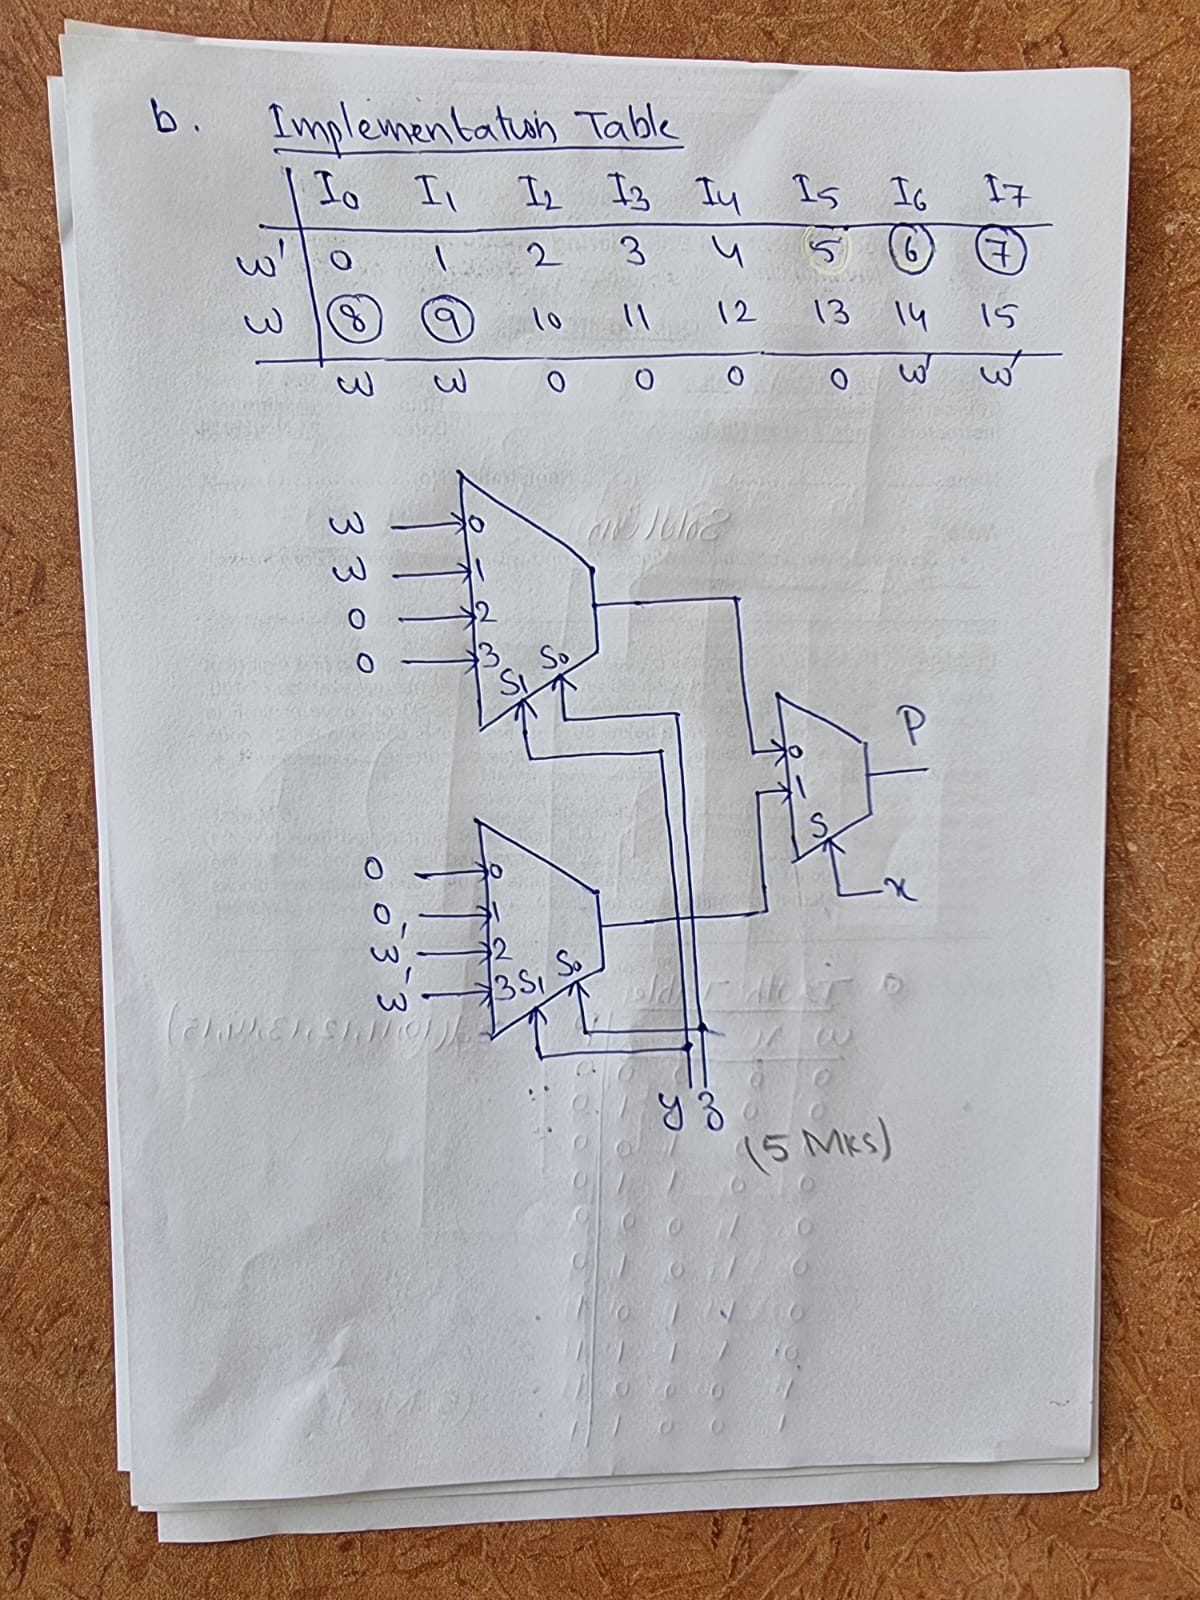 b. Implementation Table
I0 I1 I2 I3 I4 I5 I6 I7
w' 0 1 2 3 4 5 6 7
w 8 9 10 11 12 13 14 15
w w 0 0 0 0 w' w'
w 0
w 1
0 2
0 3 S1 S0
0 P
1
S
x
0 0
0 1
w' 2
w' 3 S1 S0
y z
(5 Mks)